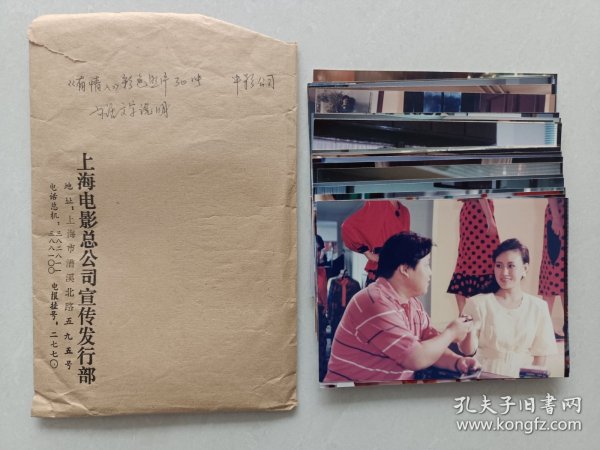 《有情人》彩色照片30张 中影公司
与原文字说明
上海电影总公司宣传发行部
地址：上海市漕溪北路五九五号
电话总机：三八二八一一
三八八一〇〇
电报挂号：二七七〇
孔夫子旧书网
www.kongfz.com